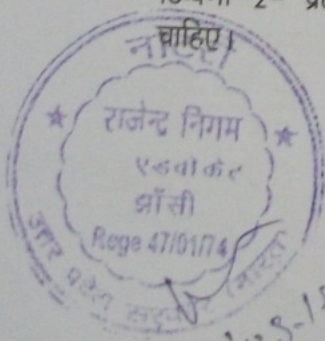 2-
चाहिए।
नोटरी
राजेन्द्र निगम
एडवोकेट
झाँसी
Rege 47/01/74
उत्तर प्रदेश सरकार (भारत)